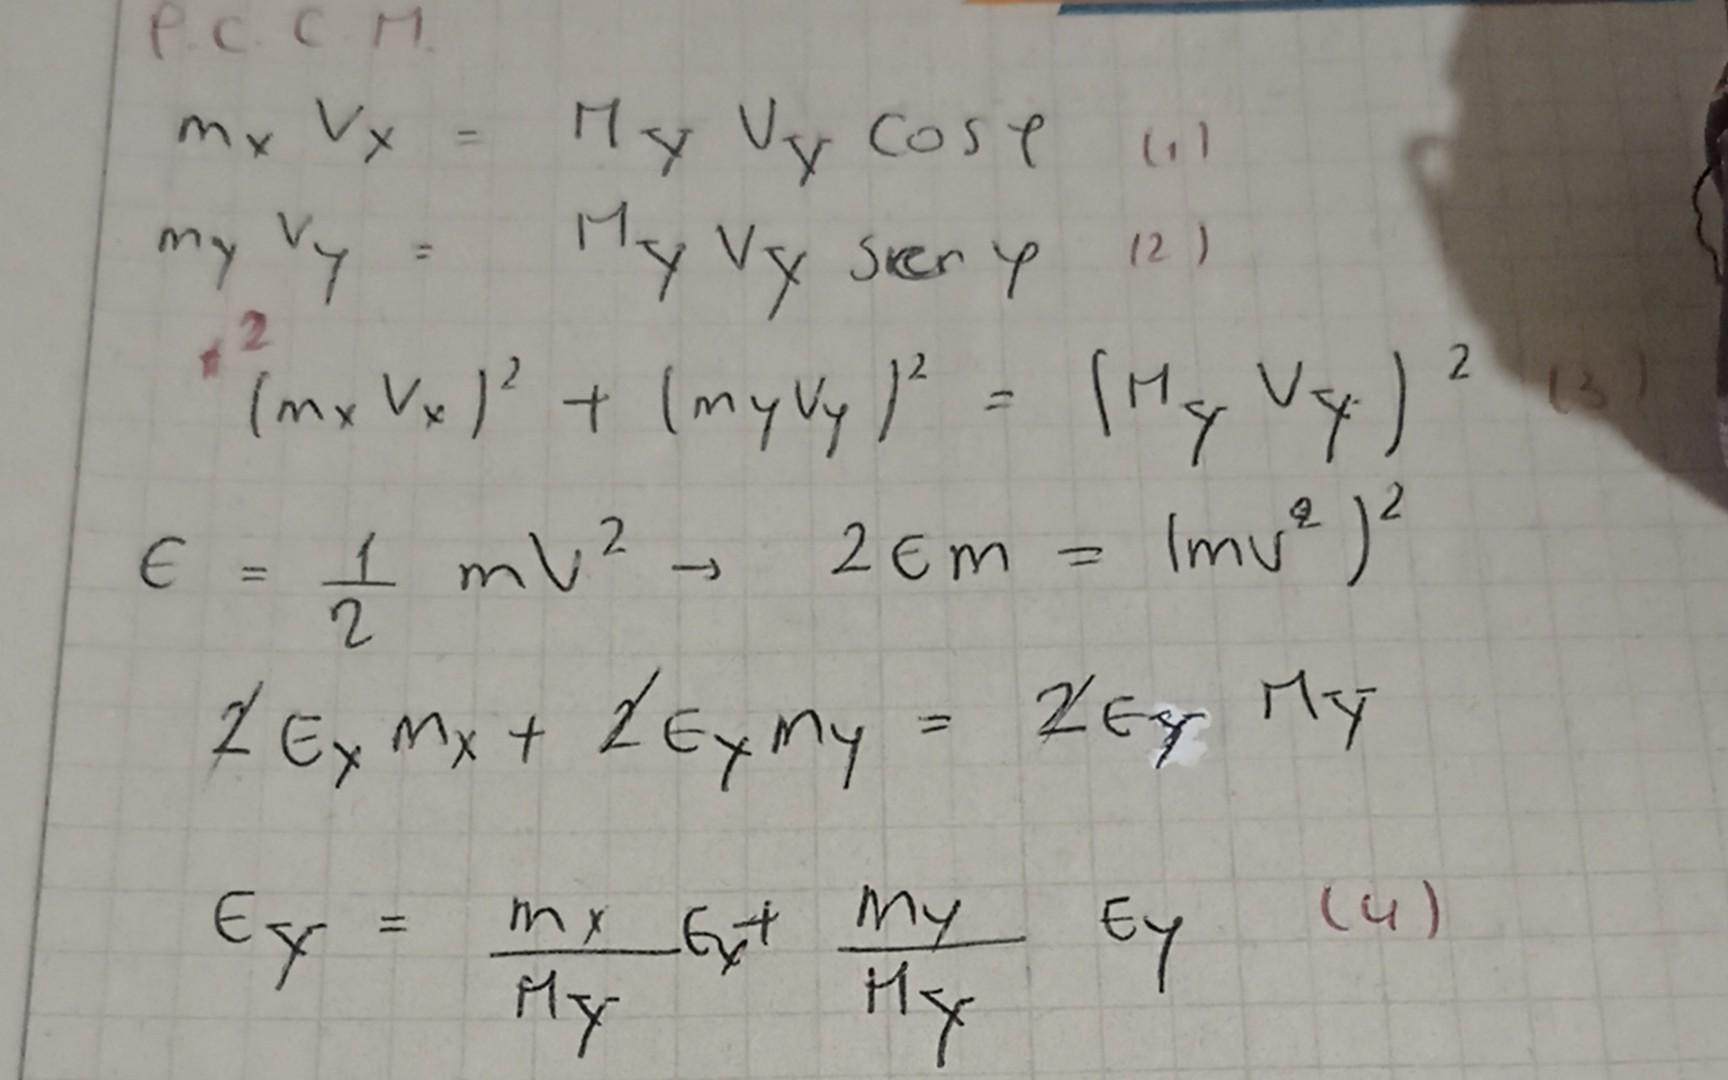 P.C.C.M.
mx Vx = My Vy cos φ (1)
my Vy = My Vy sen φ (2)
+² (mx Vx)² + (my Vy)² = (My Vy)² (3)
E = 1/2 mV² → 2Em = (mv²)²
2Ex mx + 2Ey my = 2Ey My
Ey = mx/My Ex + my/My Ey (4)